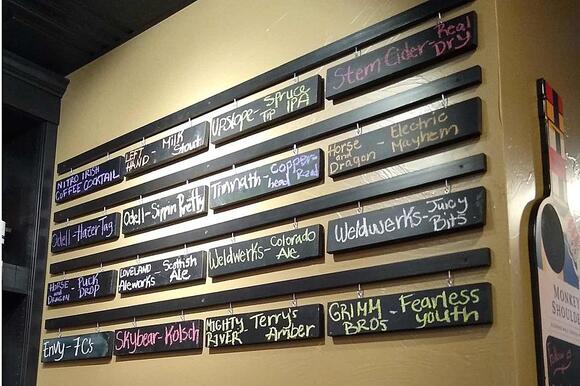 NITRO IRISH
COFFEE COCKTAIL
LEFT
HAND - Milk
Stout
Upslope - Spruce
Tip IPA
Stem Cider - Real
Dry
Odell - Hazer Tag
Odell - Sippin Pretty
Timnath - Copper-
head Red
Horse
and
Dragon - Electric
Mayhem
HORSE
AND
DRAGON - PUCK
DROP
LOVELAND
Aleworks - Scottish
Ale
Weldwerks - Colorado
Ale
Weldwerks - Juicy
Bits
Envy - 7C's
Skybear - Kolsch
MIGHTY
RIVER - Terry's
Amber
GRIMM
BROS - Fearless
Youth
MONKEY
SHOULDER